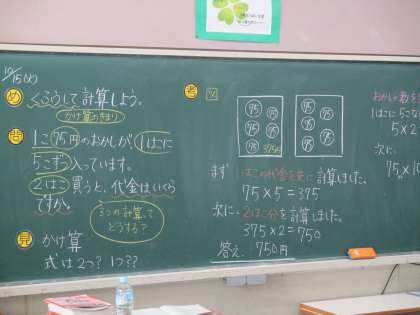 10/15(火)
め くふうして計算しよう。
かけ算のきまり
問 1こ75円のおかしが1はこに
5こずつ入っています。
2はこ買うと、代金はいくら
ですか。
3つの計算って
どうする？
見 かけ算
式は2つ？ 1つ??
考 図
75 75
75 75
75
75 75
75 75
75
まず 1はこの代金を先に計算しました。
75×5=375
次に、2はこ分を計算しました。
375×2=750
答え、750円
おかしの数を
1はこに5こな
5×2
次に、
75×10